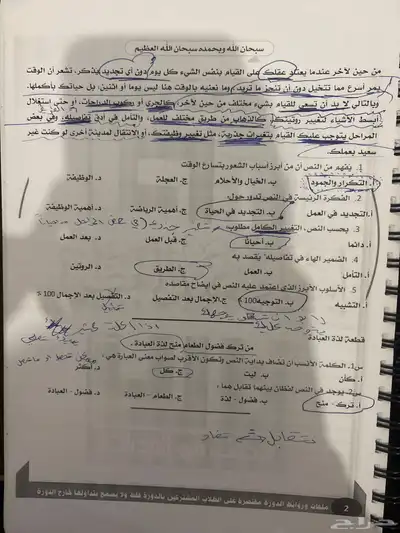 سبحان الله وبحمده سبحان الله العظيم
من حين لآخر عندما يعتاد عقلك على القيام بنفس الشيء كل يوم دون أي تجديد يذكر، تشعر أن الوقت
يمر أسرع مما تتخيل دون أن تنجز ما تريد، وما نعنيه بالوقت هنا ليس يوما أو اثنين، بل حياتك بأكملها.
وبالتالي لا بد أن تسعى للقيام بشيء مختلف من حين لآخر، كالجري أو ركوب الدراجات، أو حتى استغلال
أبسط الأشياء لتغيير روتينك كالذهاب من طريق مختلف للعمل، والتأمل في أدق تفاصيله، وفي بعض
المراحل يتوجب عليك القيام بتغييرات جذرية، مثل تغيير وظيفتك، أو الانتقال لمدينة أخرى لو كنت غير
سعيد بعملك.
1. يفهم من النص أن من أبرز أسباب الشعور بتسارع الوقت
أ. التكرار والجمود ب. الخيال والأحلام ج. العجلة د. الوظيفة
2. الفكرة الرئيسة في النص تدور حول
أ. التجديد في العمل ب. التجديد في الحياة ج. أهمية الرياضة د. أهمية الوظيفة
3. بحسب النص، التغيير الكامل مطلوب
أ. دائما ب. أحيانا ج. قبل العمل د. بعد العمل
4. الضمير الهاء في تفاصيله، يقصد به
أ. التأمل ب. العمل ج. الطريق د. الروتين
5. الأسلوب الأبرز الذي اعتمد عليه النص في إيضاح مقاصده
أ. التشبيه ب. التوجيه 100% ج. الإجمال بعد التفصيل د. التفصيل بعد الإجمال 100%
قطعة لذة العبادة
من ترك فضول الطعام منح لذة العبادة.
س1. الكلمة الأنسب أن تضاف بداية النص وتكون الأقرب لسواب معنى العبارة هي،
أ. كأن ب. ليت ج. كل د. أكثر
س2. يوجد في النص لفظان بينهما تقابل هما،
أ. ترك - منح ب. فضول - لذة ج. الطعام - العبادة د. فضول - العبادة
تقابل تضاد
ملفات وروابط الدورة مقتصرة على الطلاب المشتركين بالدورة فقط ولا يسمح بتداولها خارج الدورة
2
حراج